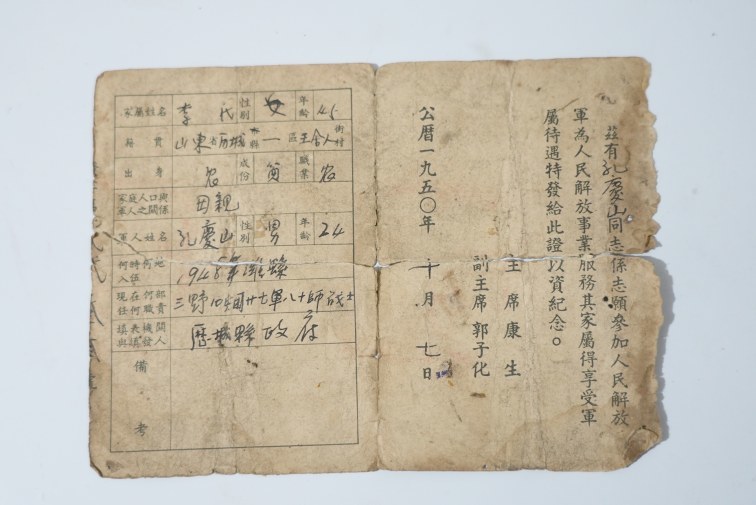 茲有孔慶山同志係志願參加人民解放
軍為人民解放事業服務其家屬得享受軍
屬待遇特發給此證以資紀念。
主席康生
副主席郭子化
公曆一九五〇年十月七日
家屬姓名 李氏 性別 女 年齡 45
籍貫 山東省歷城縣一區王舍人街村
出身 农 成份 貧 職業 农
家庭人口與軍人之關係 母親
軍人姓名 孔慶山 性別 男 年齡 24
何時何地入伍 1948年濰縣
現在何部任何職責 三野10兵團廿七軍八十師战士
填表機關與填發人 歷城縣政府
備考